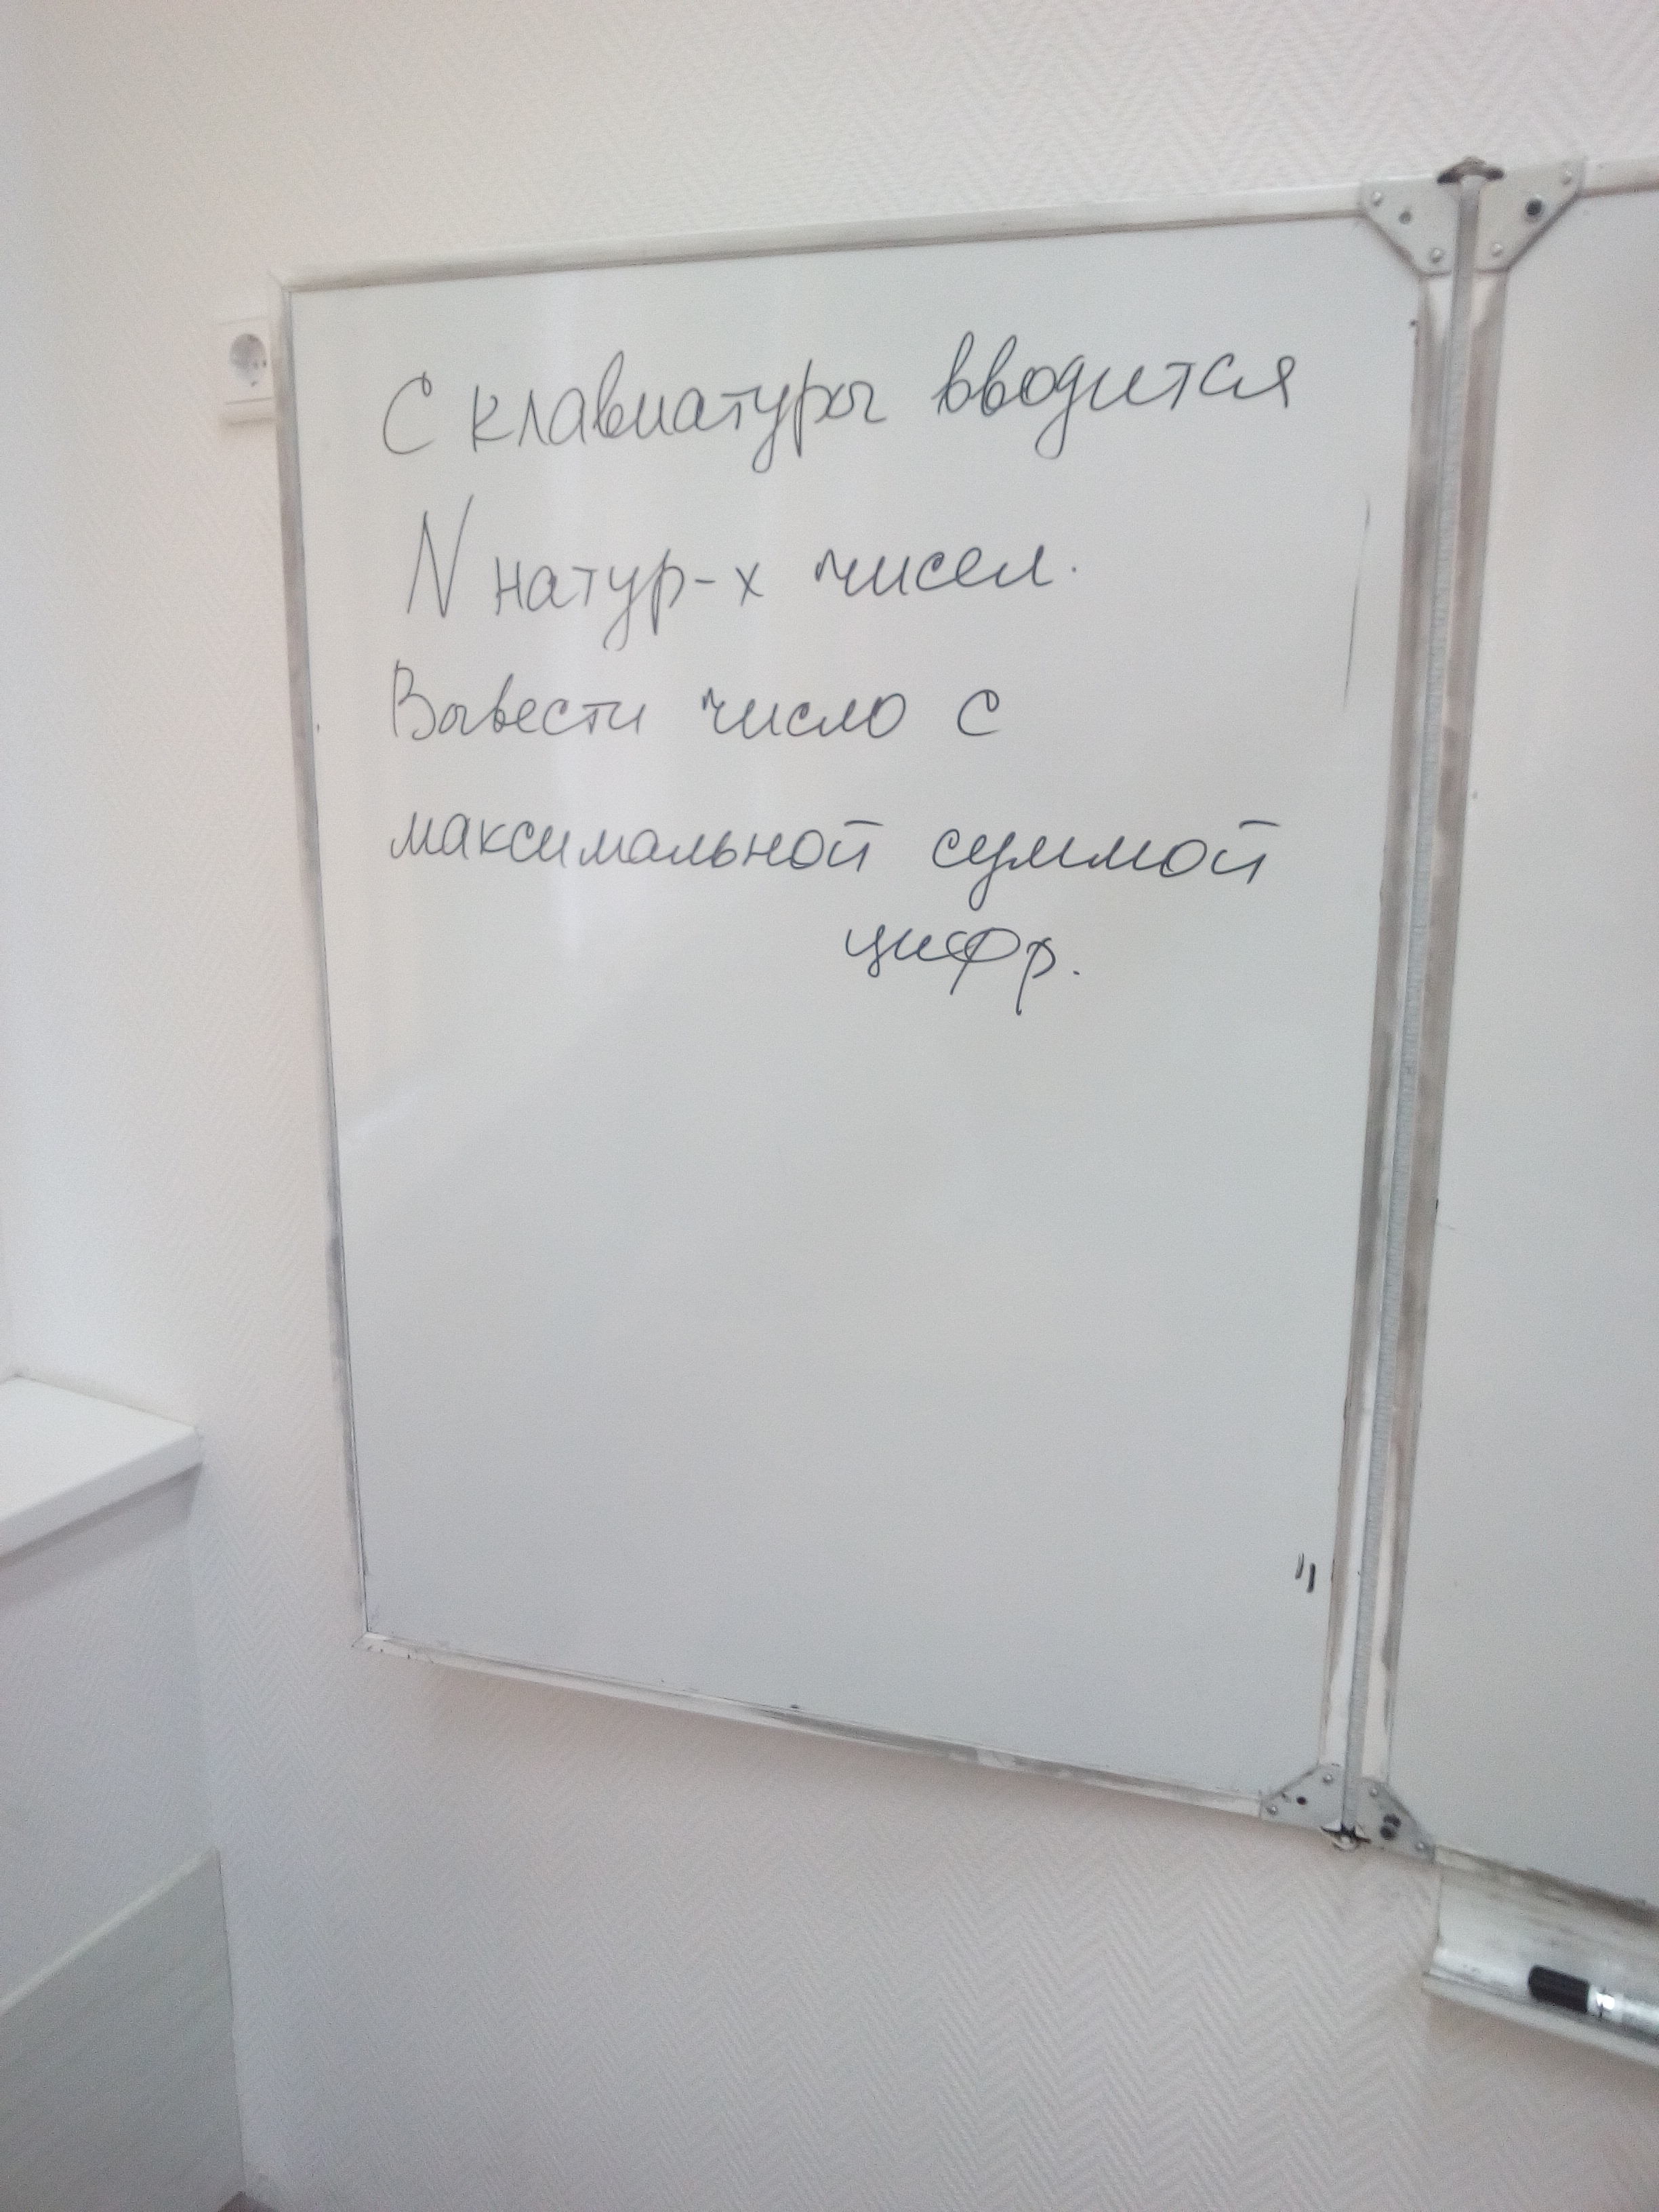 С клавиатуры вводится
N натур-х чисел.
Вывести число с
максимальной суммой
цифр.